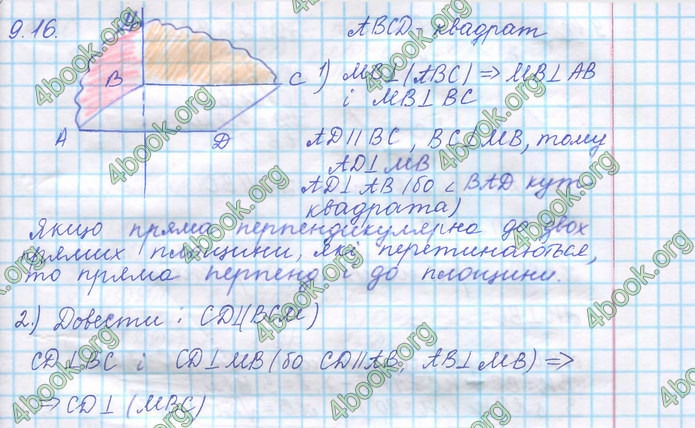 9.16.
M
B
C
A
D
ABCD квадрат
1) MB⊥(ABC) ⇒ MB⊥AB
і MB⊥BC
AD∥BC, BC⊥MB, тому
AD⊥MB
AD⊥AB (бо ∠BAD кут
квадрата)
Якщо пряма перпендикулярна до двох
прямих площини, які перетинаються,
то пряма перпенд і до площини.
2.) Довести: CD⊥(BCM)
CD⊥BC і CD⊥MB (бо CD∥AB, AB⊥MB) ⇒
⇒ CD⊥(MBC)
4book.org